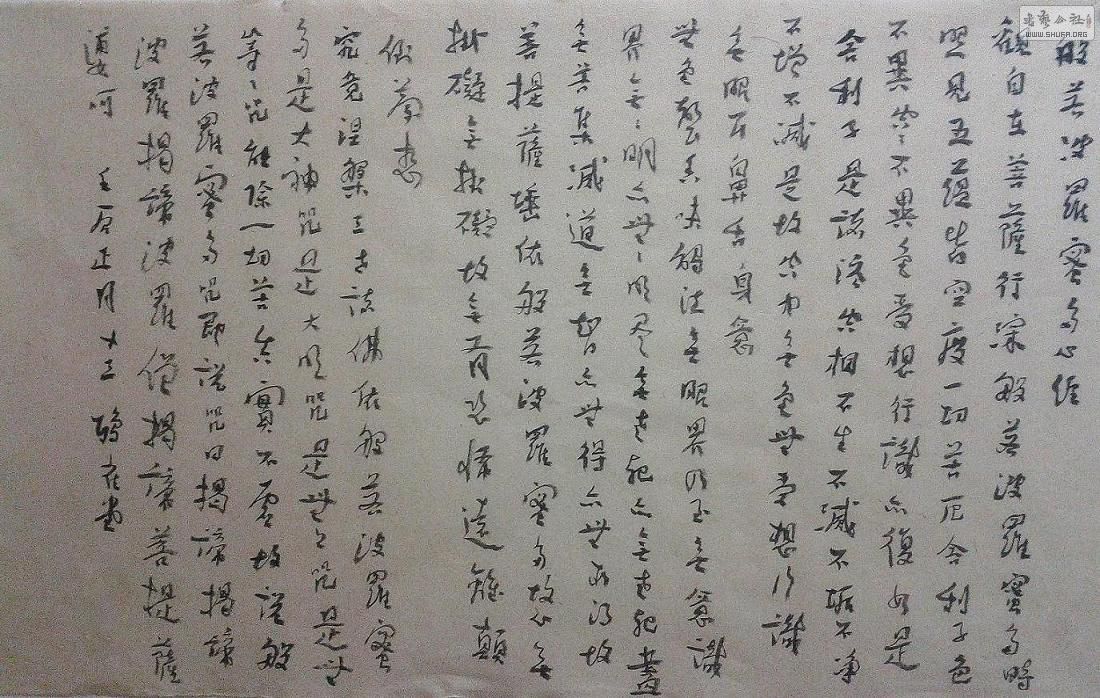 般若波羅蜜多心經
觀自在菩薩行深般若波羅蜜多時
照見五蘊皆空度一切苦厄舍利子色
不異空空不異色受想行識亦復如是
舍利子是諸法空相不生不滅不垢不净
不增不減是故空中無色無受想行識
無眼耳鼻舌身意
無色聲香味觸法無眼界乃至無意識
界無無明亦無無明盡無老死亦無老死盡
無苦集滅道無智亦無得亦無所得故
菩提薩埵依般若波羅蜜多故心無
掛礙無掛礙故無有恐怖遠離顛
倒夢想
究竟涅槃三世諸佛依般若波羅蜜
多是大神咒是大明咒是無上咒是無
等等咒能除一切苦真實不虛故說般
若波羅蜜多咒即說咒曰揭諦揭諦
波羅揭諦波羅僧揭諦菩提薩
婆呵
正月十三
书艺公社
WWW.SHUFA.ORG